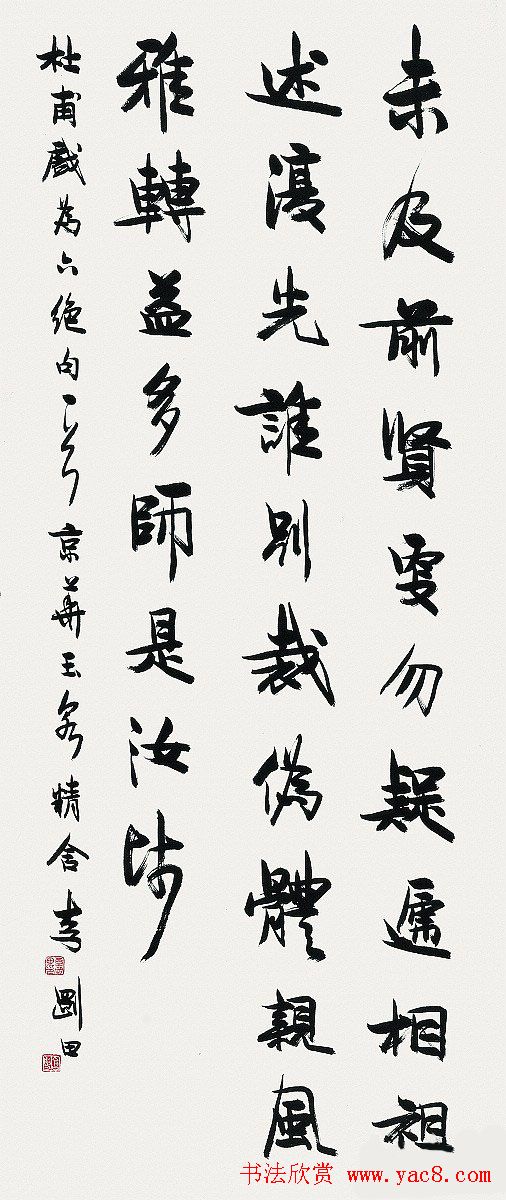 未及前賢更勿疑遞相祖
述復先誰別裁偽體親風
雅轉益多師是汝師
杜甫戲為六絕句一首京華玉精舍李剛田
书法欣赏 www.yac8.com